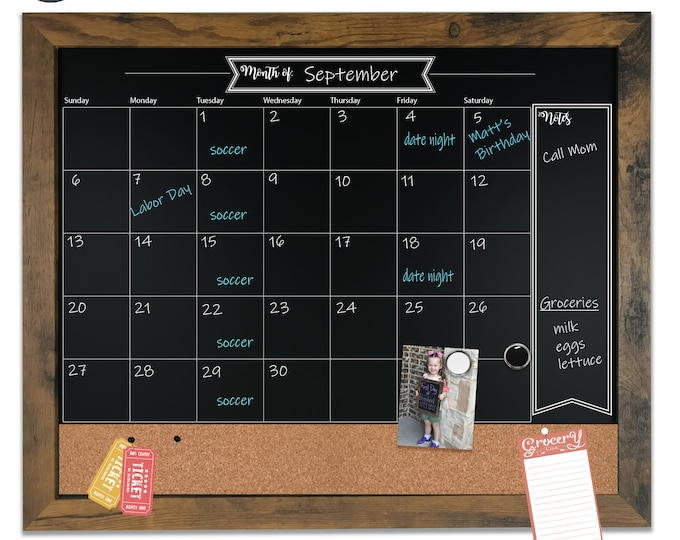 Month of: September
Sunday Monday Tuesday Wednesday Thursday Friday Saturday
Notes
1 2 3 4 5
soccer date night Matt's
Birthday
Call Mom
6 7 8 9 10 11 12
Labor Day
soccer
13 14 15 16 17 18 19
soccer date night
Groceries
milk
eggs
lettuce
20 21 22 23 24 25 26
soccer
27 28 29 30
soccer
TICKET
TICKET
GroceRY